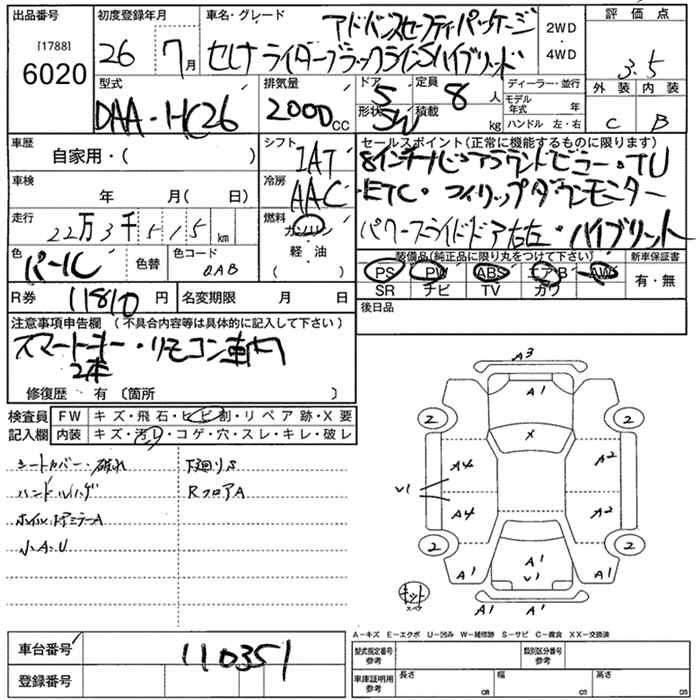 出品番号
[1788]
6020
初度登録年月
26 7月
車名・グレード
アドバンスセーフティパッケージ
セレナ ライダーブラックラインSハイブリッド
2WD
4WD
評価点
3.5
外装 内装
C B
型式
DAA-HC26
排気量
2000cc
ドア
5
形状
SW
定員
8人
積載
kg
ディーラー・並行
モデル年式 年
ハンドル 左・右
車歴
自家用・( )
シフト
IAT
冷房
AAC
燃料
ガソリン
軽油
( )
車検
年 月( 日)
走行
22万3千515km
色
パール
色替
色コード
QAB
R券
11810円
名変期限 月 日
セールスポイント(正常に機能するものに限ります)
8インチナビ・アラウンドビュー・TV
ETC・フィリップダウンモニター
パワースライドドア右左・ハイブリット
装備品(純正品に限り丸をつけて下さい)
PS PW ABS エアB AW
SR ナビ TV カワ
新車保証書
有・無
後日品
注意事項申告欄(不具合内容等は具体的に記入して下さい)
スマートキー・リモコン車内
2本
修復歴 有〔箇所 〕
検査員
記入欄
FW キズ・飛石・ヒビ割・リペア跡・X要
内装 キズ・汚レ・コゲ・穴・スレ・キレ・破レ
シートカバー・破れ
下廻りS
RフロアA
小A・U
A3
A1
2 2
X
A4 A2
V1
A4 A2
2 2
A1
V1
A1 A1
A1 A1
キット
スペア
A-キズ E-エクボ U-凹み W-補修跡 S-サビ C-腐食 XX-交換済
車台番号
110351
登録番号
型式指定番号
参考
類別区分番号
参考
車庫証明用
参考
長さ cm
幅 cm
高さ cm